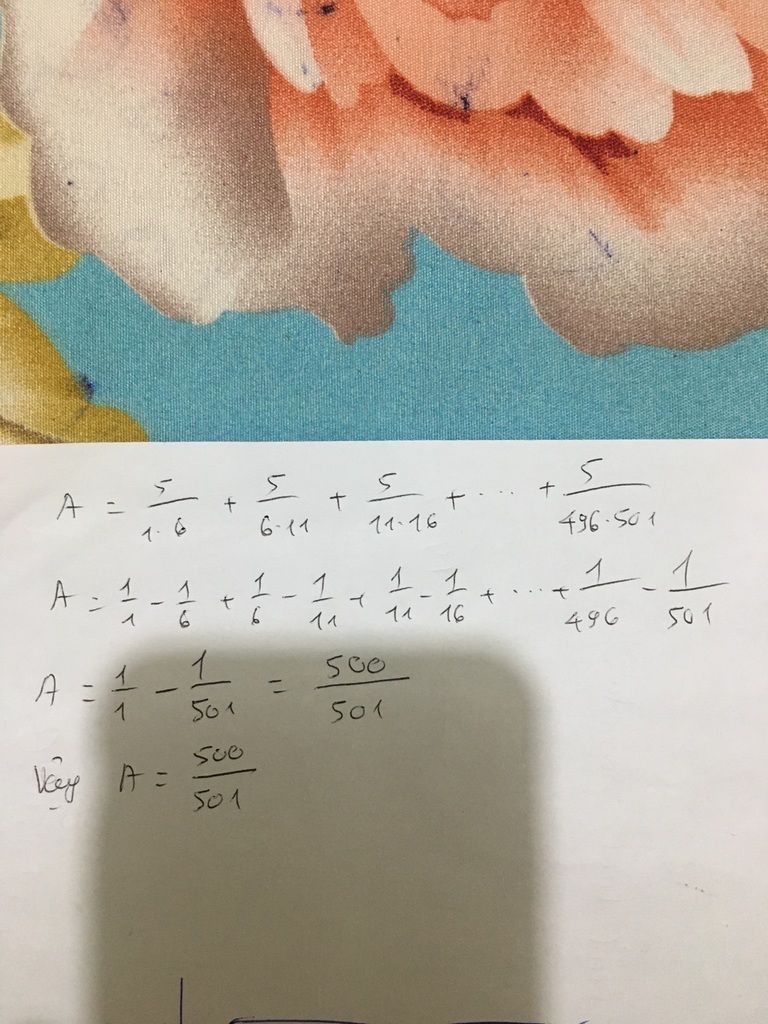 A = 5/1·6 + 5/6·11 + 5/11·16 + ... + 5/496·501
A = 1/1 - 1/6 + 1/6 - 1/11 + 1/11 - 1/16 + ... + 1/496 - 1/501
A = 1/1 - 1/501 = 500/501
Vậy A = 500/501